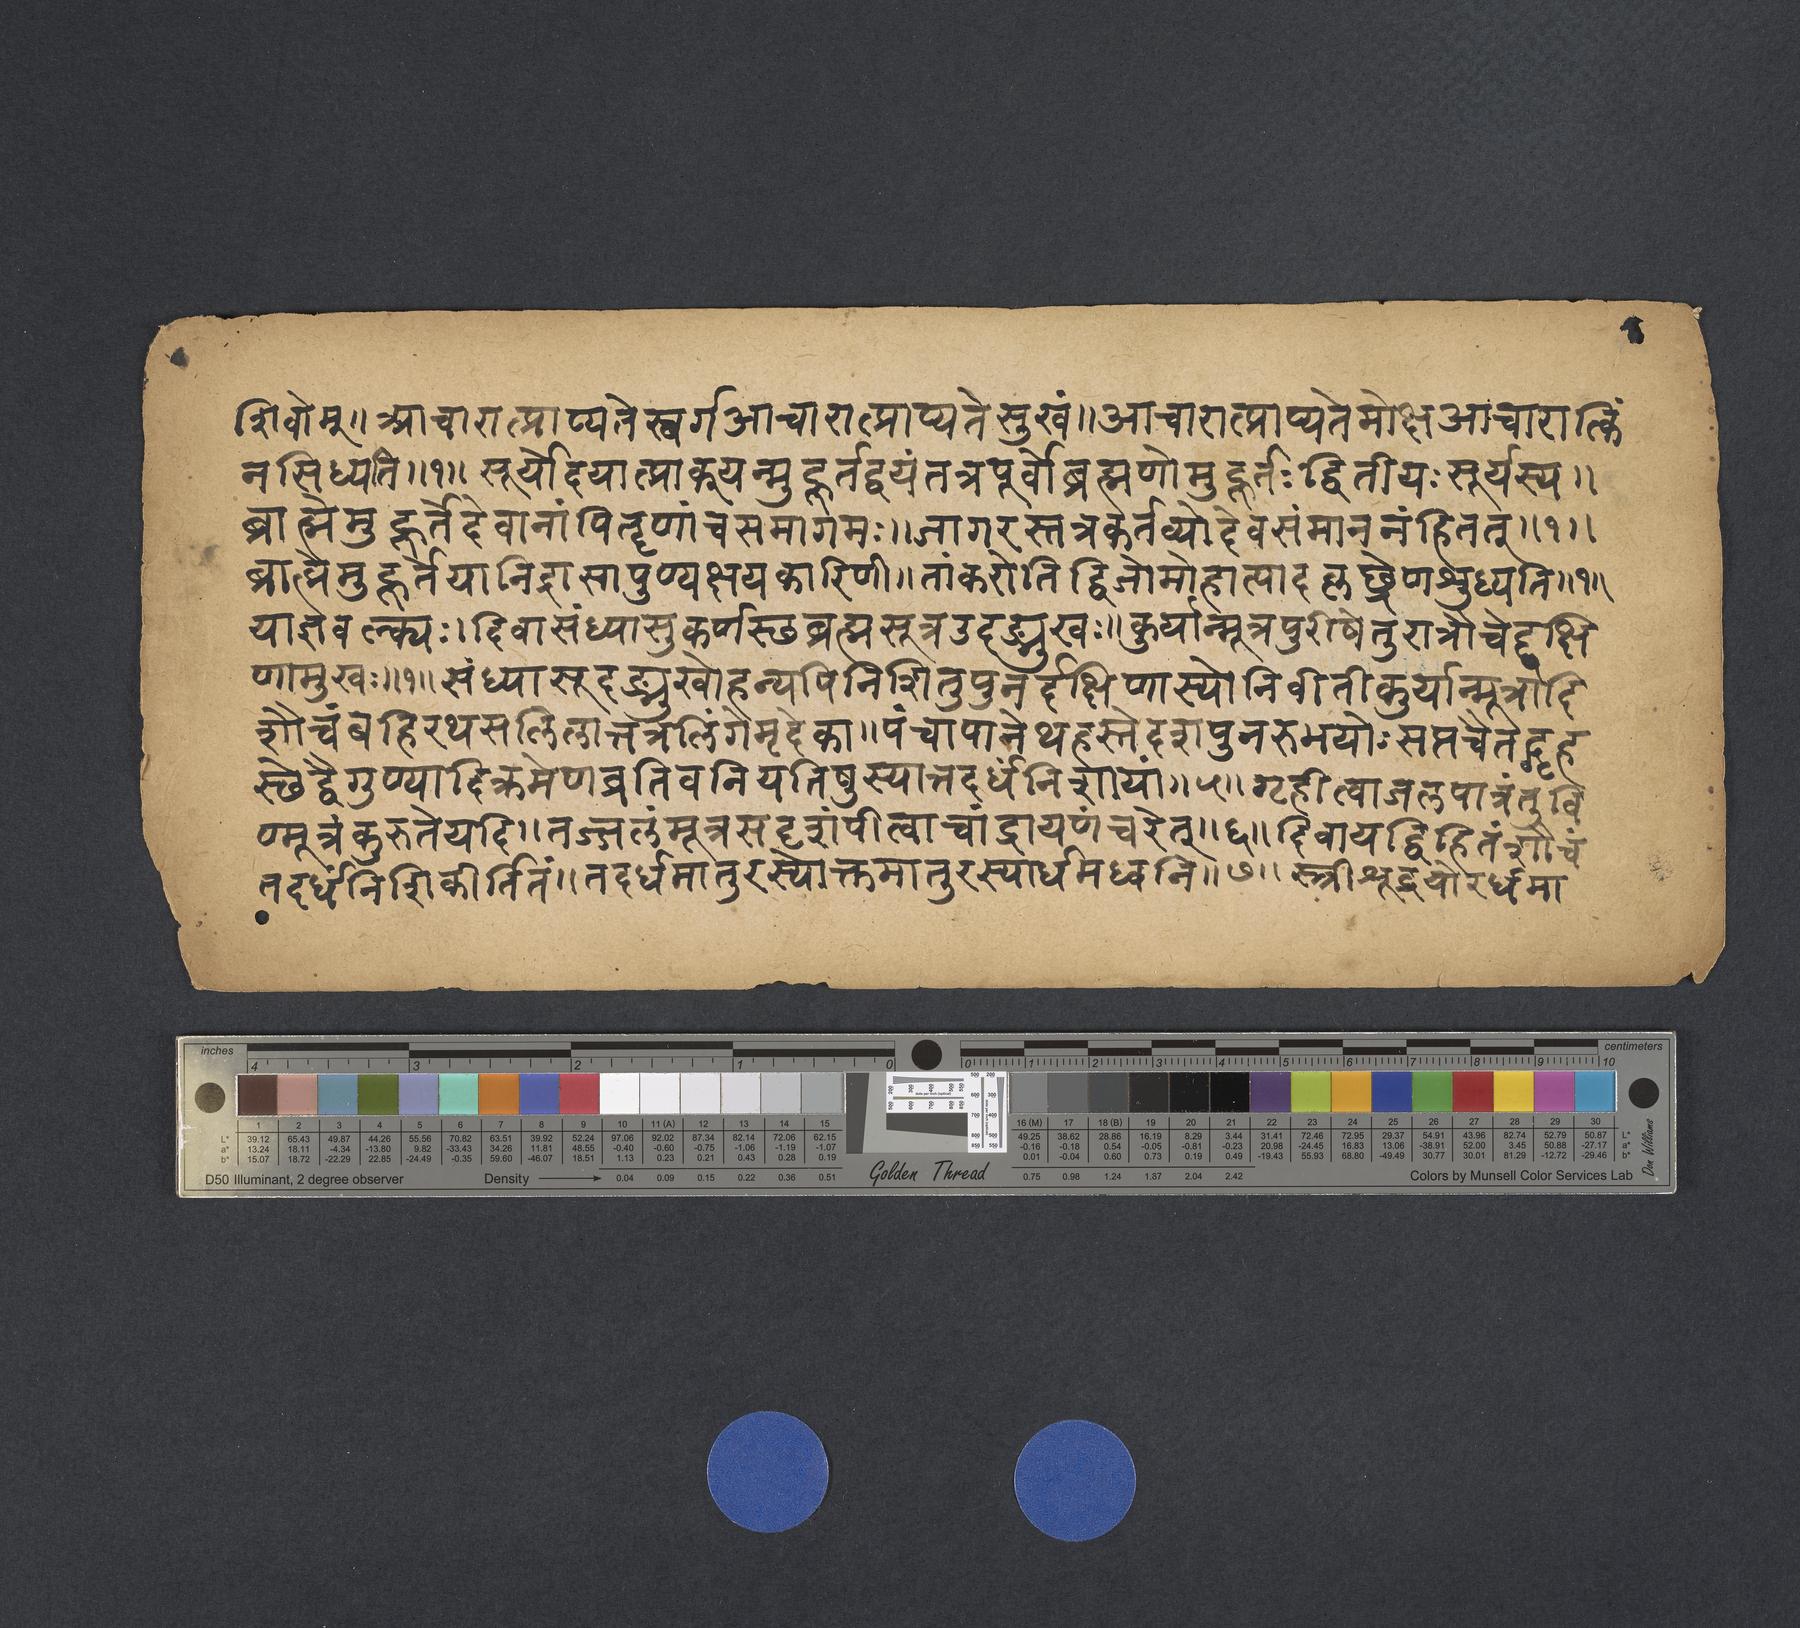 शिवोमू॥ आचारात्प्राप्यते स्वर्ग आचारात्प्राप्यते सुखं॥ आचारात्प्राप्यते मोक्ष आचारात्किं
न सिध्यति॥१॥ सूर्योदयात्प्राक्रूयन्मुहूर्तद्वयं तत्र पूर्वो ब्रह्मणो मुहूर्तः द्वितीयः सूर्यस्य॥
ब्राह्मे मुहूर्ते देवानां पितॄणां च समागमः॥ जागरस्तत्र कर्तव्यो देवसंमाननं हि तत्॥१॥
ब्राह्मे मुहूर्ते या निद्रा सा पुण्यक्षयकारिणी॥ तां करोति द्विजो मोहात्पादकृछ्रेण शुध्यति॥१॥
याज्ञवल्क्यः। दिवासंध्यासु कर्णस्छब्रह्मसूत्र उदङ्मुखः॥ कुर्यान्मूत्रपुरीषे तु रात्रौ चेद्दक्षि
णामुखः॥१॥ संध्यासूदङ्मुखोहन्यपि निशि तु पुनर्दक्षिणास्यो निवीती कुर्यान्मूत्रादि
शौचं बहिरथ सलिलात्तत्र लिंगे मृदेका॥ पंचापानेथ हस्ते दश पुनरुभयोः सप्त चैतद्गृह
स्छे द्वैगुण्यादिक्रमेण व्रतिवनियतिषु स्यात्तदर्धं निशायां॥५॥ गृहीत्वा जलपात्रं तु वि
ण्मूत्रं कुरुते यदि॥ तज्जलं मूत्रसदृशं पीत्वा चांद्रायणं चरेत्॥६॥ दिवा यद्विहितं शौचं
तदर्धं निशि कीर्तितं॥ तदर्धमातुरस्योक्तमातुरस्यार्धमध्वनि॥७॥ स्त्रीशूद्रयोरर्धमा
inches
centimeters
4 3 2 1 0
0 1 2 3 4 5 6 7 8 9 10
1 2 3 4 5 6 7 8 9 10 11 (A) 12 13 14 15
16 (M) 17 18 (B) 19 20 21 22 23 24 25 26 27 28 29 30
L* 39.12 65.43 49.87 44.26 55.56 70.82 63.51 39.92 52.24 97.06 92.02 87.34 82.14 72.06 62.15
49.25 38.62 28.86 16.19 8.29 3.44 31.41 72.46 72.95 29.37 54.91 43.96 82.74 52.79 50.87 L*
a* 13.24 18.11 -4.34 -13.80 9.82 -33.43 34.26 11.81 48.55 -0.40 -0.60 -0.75 -1.06 -1.19 -1.07
-0.16 -0.18 0.54 -0.05 -0.81 -0.23 20.98 -24.45 16.83 13.06 -38.91 52.00 3.45 50.88 -27.17 a*
b* 15.07 18.72 -22.29 22.85 -24.49 -0.35 59.60 -46.07 18.51 1.13 0.23 0.21 0.43 0.28 0.19
0.01 -0.04 0.60 0.73 0.19 0.49 -19.43 55.93 68.80 -49.49 30.77 30.01 81.29 -12.72 -29.46 b*
D50 Illuminant, 2 degree observer
Density 0.04 0.09 0.15 0.22 0.36 0.51
Golden Thread
0.75 0.98 1.24 1.87 2.04 2.42
Colors by Munsell Color Services Lab
Don Williams